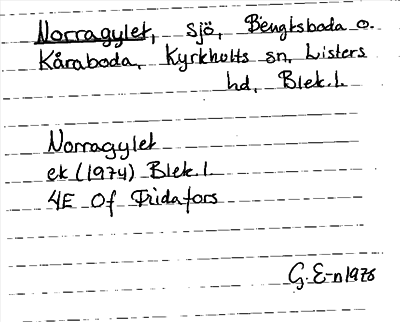 Norragylet, sjö, Bengtsboda o.
Kåraboda, Kyrkhults sn, Listers
hd, Blek.l.
Norragylet
ek (1974) Blek.l.
4E Of Fridafors
G. E-n 1976